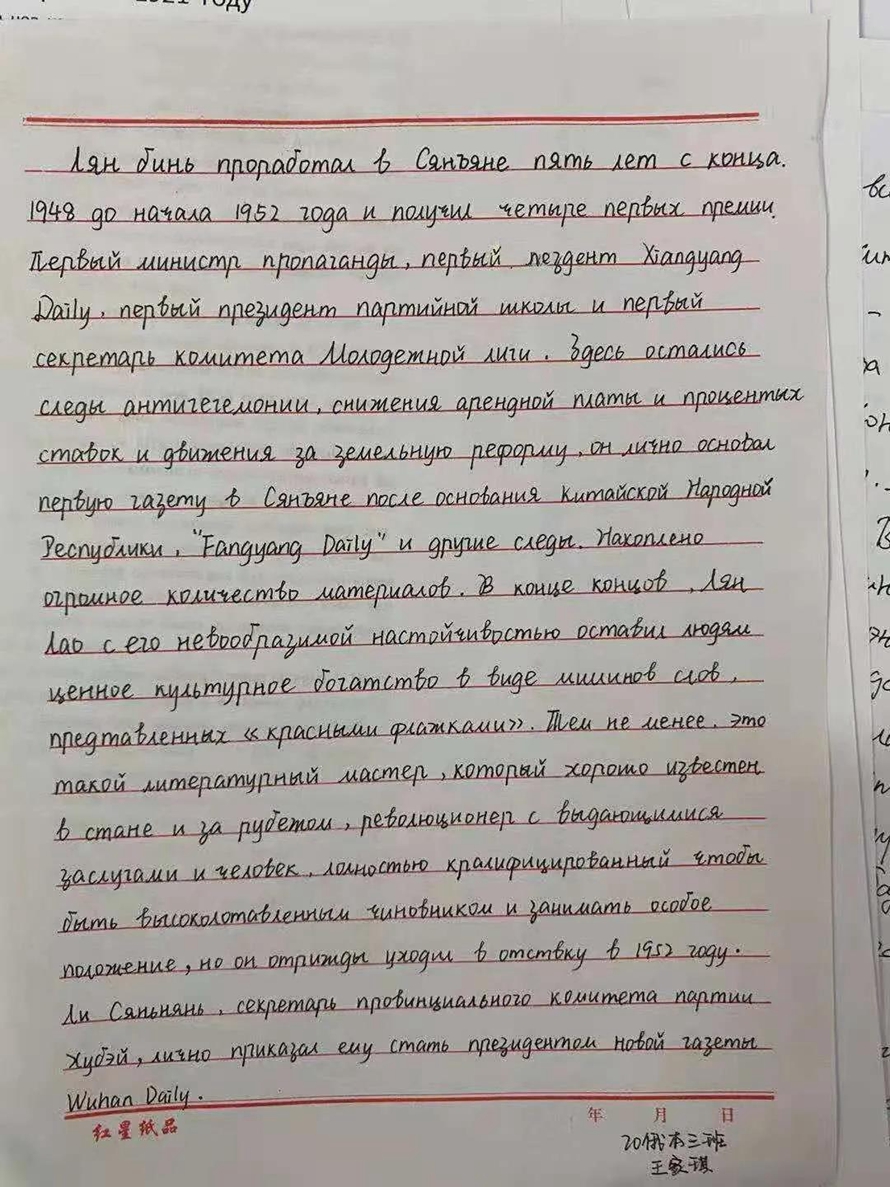 1921 году
Лян бинь проработал в Сянъяне пять лет с конца.
1948 до начала 1952 года и получил четыре первых премии.
Первый министр пропаганды, первый пездент Xiangyang
Daily, первый президент партийной школы и первый
секретарь комитета Молодежной лиги. Здесь остались
следы антигегемонии, снижения арендной платы и процентых
ставок и движения за земельную реформу, он лично основал
первую газету в Сянъяне после основания Китайской Народной
Республики, "Fangyang Daily" и другие следы. Накоплено
огромное количество материалов. В конце концов, Лян
Лао с его невообразимой настойчивостью оставил людям
ценное культурное богатство в виде миллинов слов,
предтавленных «красными флажками». Тем не менее, это
такой литературный мастер, который хорошо известен
в стане и за рубетом, революционер с выдающимися
заслугами и человек, лолностью кралифицированный чтобы
быть высоколотавленным чиновником и занимать особое
положение, но он отрижды уходил в отствку в 1952 году.
Ли Сяньнянь, секретарь провинциального комитета партии
Хубэй, лично приказал ему стать президентом новой газеты
Wuhan Daily.
红星纸品
年 月 日
20俄本三班
王家琪